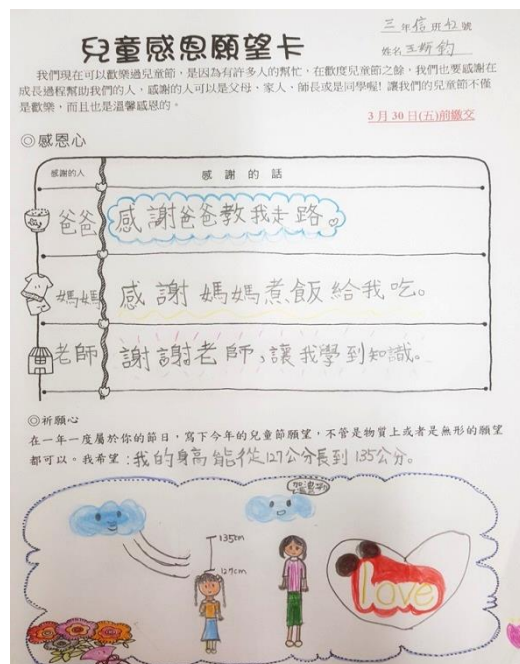 三年信班42號
兒童感恩願望卡
姓名
我們現在可以歡樂過兒童節，是因為有許多人的幫忙，在歡度兒童節之餘，我們也要感謝在
成長過程幫助我們的人，感謝的人可以是父母、家人、師長或是同學喔! 讓我們的兒童節不僅
是歡樂，而且也是溫馨感恩的。
3月30日(五)前繳交
◎感恩心
感謝的人 感謝的話
爸爸 感謝爸爸教我走路。
媽媽 感謝媽媽煮飯給我吃。
老師 謝謝老師，讓我學到知識。
◎祈願心
在一年一度屬於你的節日，寫下今年的兒童節願望，不管是物質上或者是無形的願望
都可以。我希望：我的身高能從127公分長到135公分。
135cm
127cm
Love